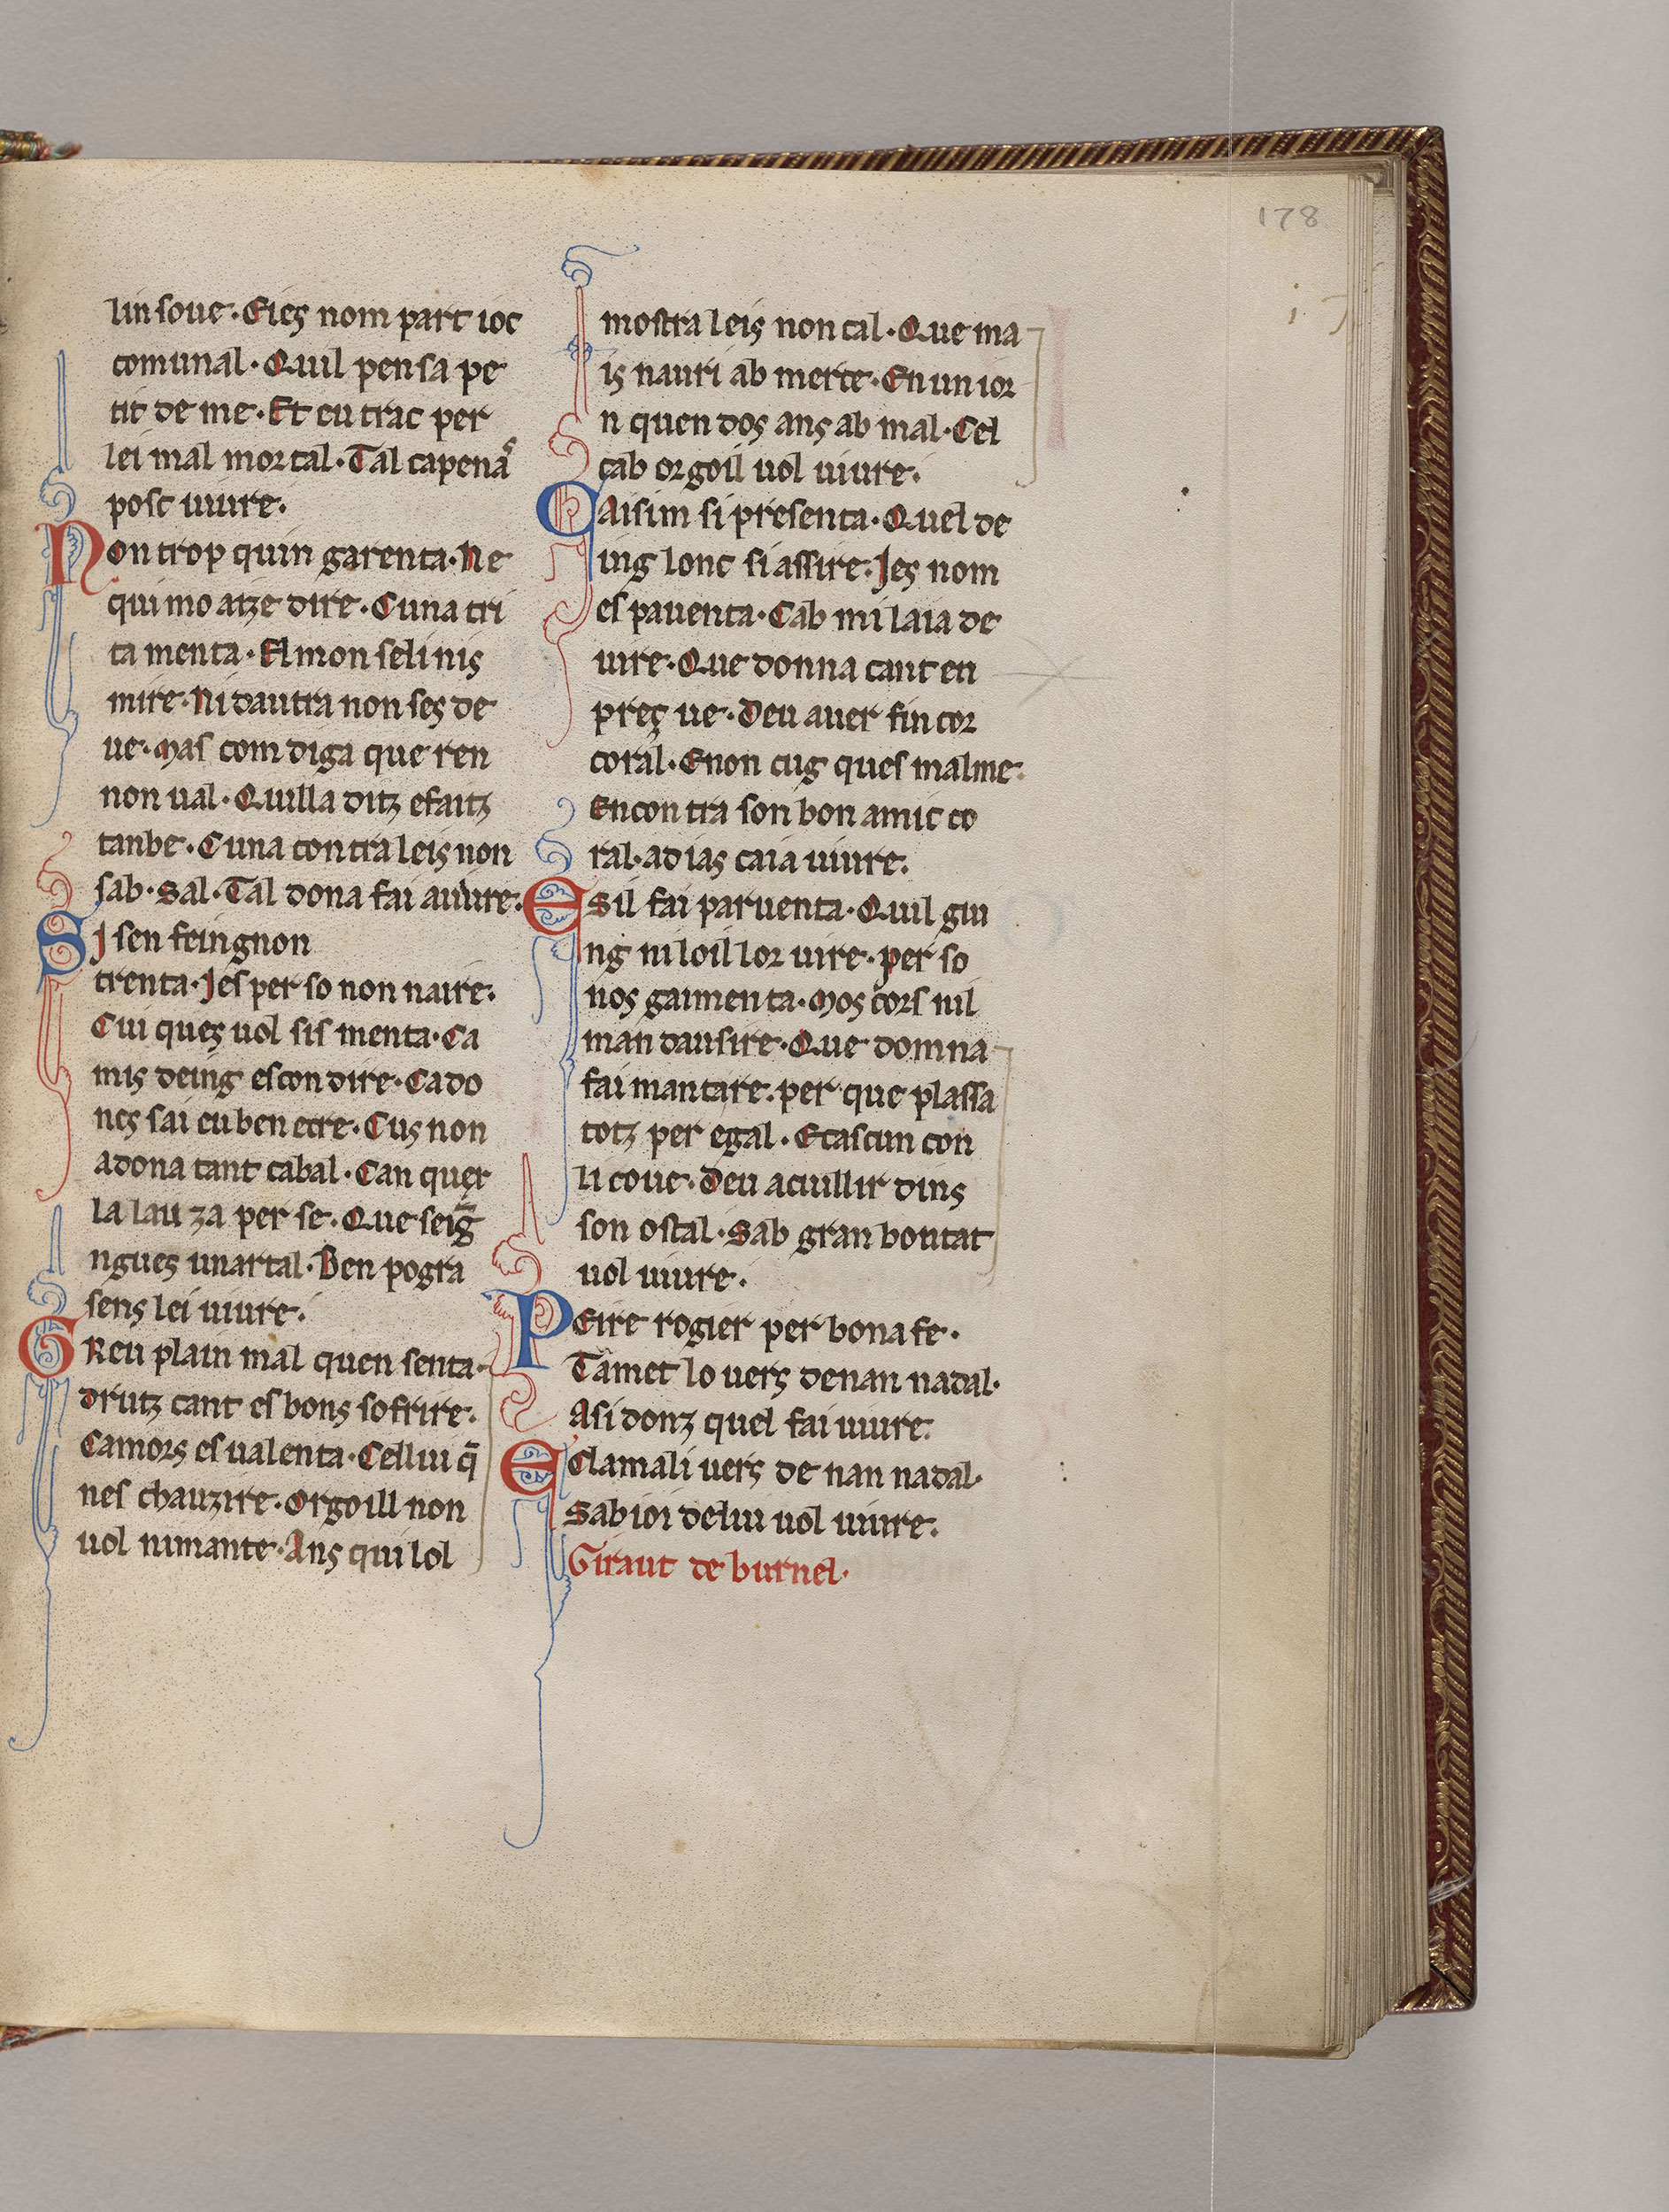 178
lin soue · Eieç nom part ioc
comunal · Quil pensa pe
tit de me · Et eu trac per
lei mal mortal · Tal capena
posc uiure ·
Non trop quin garenta · Ne
qui mo auze dire · Cuna tri
ta menta · El mon seli niç
mire · Ni dautra non seç de
ue · mas com diga que ren
non ual · Quilla ditz efaitz
tanbe · Cuna contra leiç non
sab · sal · Tal dona fai auiure ·
Si sen feingnon
trenta · Jes per so non naire ·
Cui queç uol sis menta · Ca
miç deing escondire · Cado
neç sai eu ben ecre · Cuç non
adona tant cabal · Can quer
la lauza per se · Que seig̅
ngueç unartal · Ben pogra
senç lei uiure ·
Greu plain mal quen senta ·
drutz cant es bonç sofrire ·
Camorç es ualenta · Cellui q̅
nes chauzire · Orgoill non
uol nimante · Anç qui lol
mostra leiç non cal · Que ma
iç nauri ab merce · En un ior
n quen doç anç ab mal · Cel
cab orgoil uol uiure ·
Caisim si presenta · Quel de
ing lonc si assire · Jeç nom
es pauenta · Cab mi laia de
uire · Que donna cant en
preç ue · Deu auer fin cor
coral · Enon cug ques malme ·
Encontra son bon amic co
ral · ad iaç caia uiure ·
Esil fai paruenta · Quil giu
ng ni loil lor uire · per so
noç gaimenta · moç cors nil
man dausire · Que domna
fai mantare · per que plassa
totz per egal · Ecascun con
li coue · Deu aculhir dinç
son ostal · Sab gran bontat
uol uiure ·
Peire rogier per bona fe ·
Tamet lo uerç denan nadal ·
Asi donz quel fai uiure ·
Eclamali uerç de nan nadal ·
Sab ioi delui uol uiure ·
Giraut de burnel ·